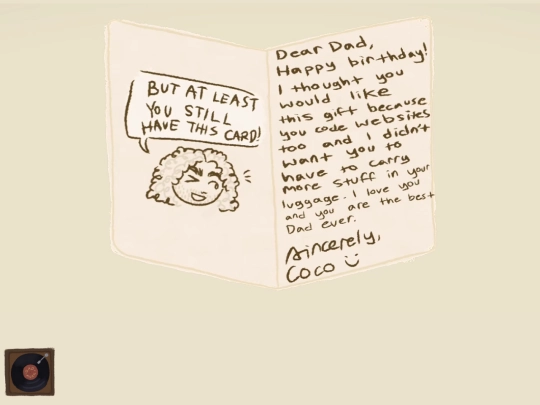 BUT AT LEAST
YOU STILL
HAVE THIS CARD!
Dear Dad,
Happy birthday!
I thought you
would like
this gift because
you code websites
too and I didn't
want you to
have to carry
more stuff in your
luggage. I love you
and you are the best
Dad ever.
Sincerely,
Coco